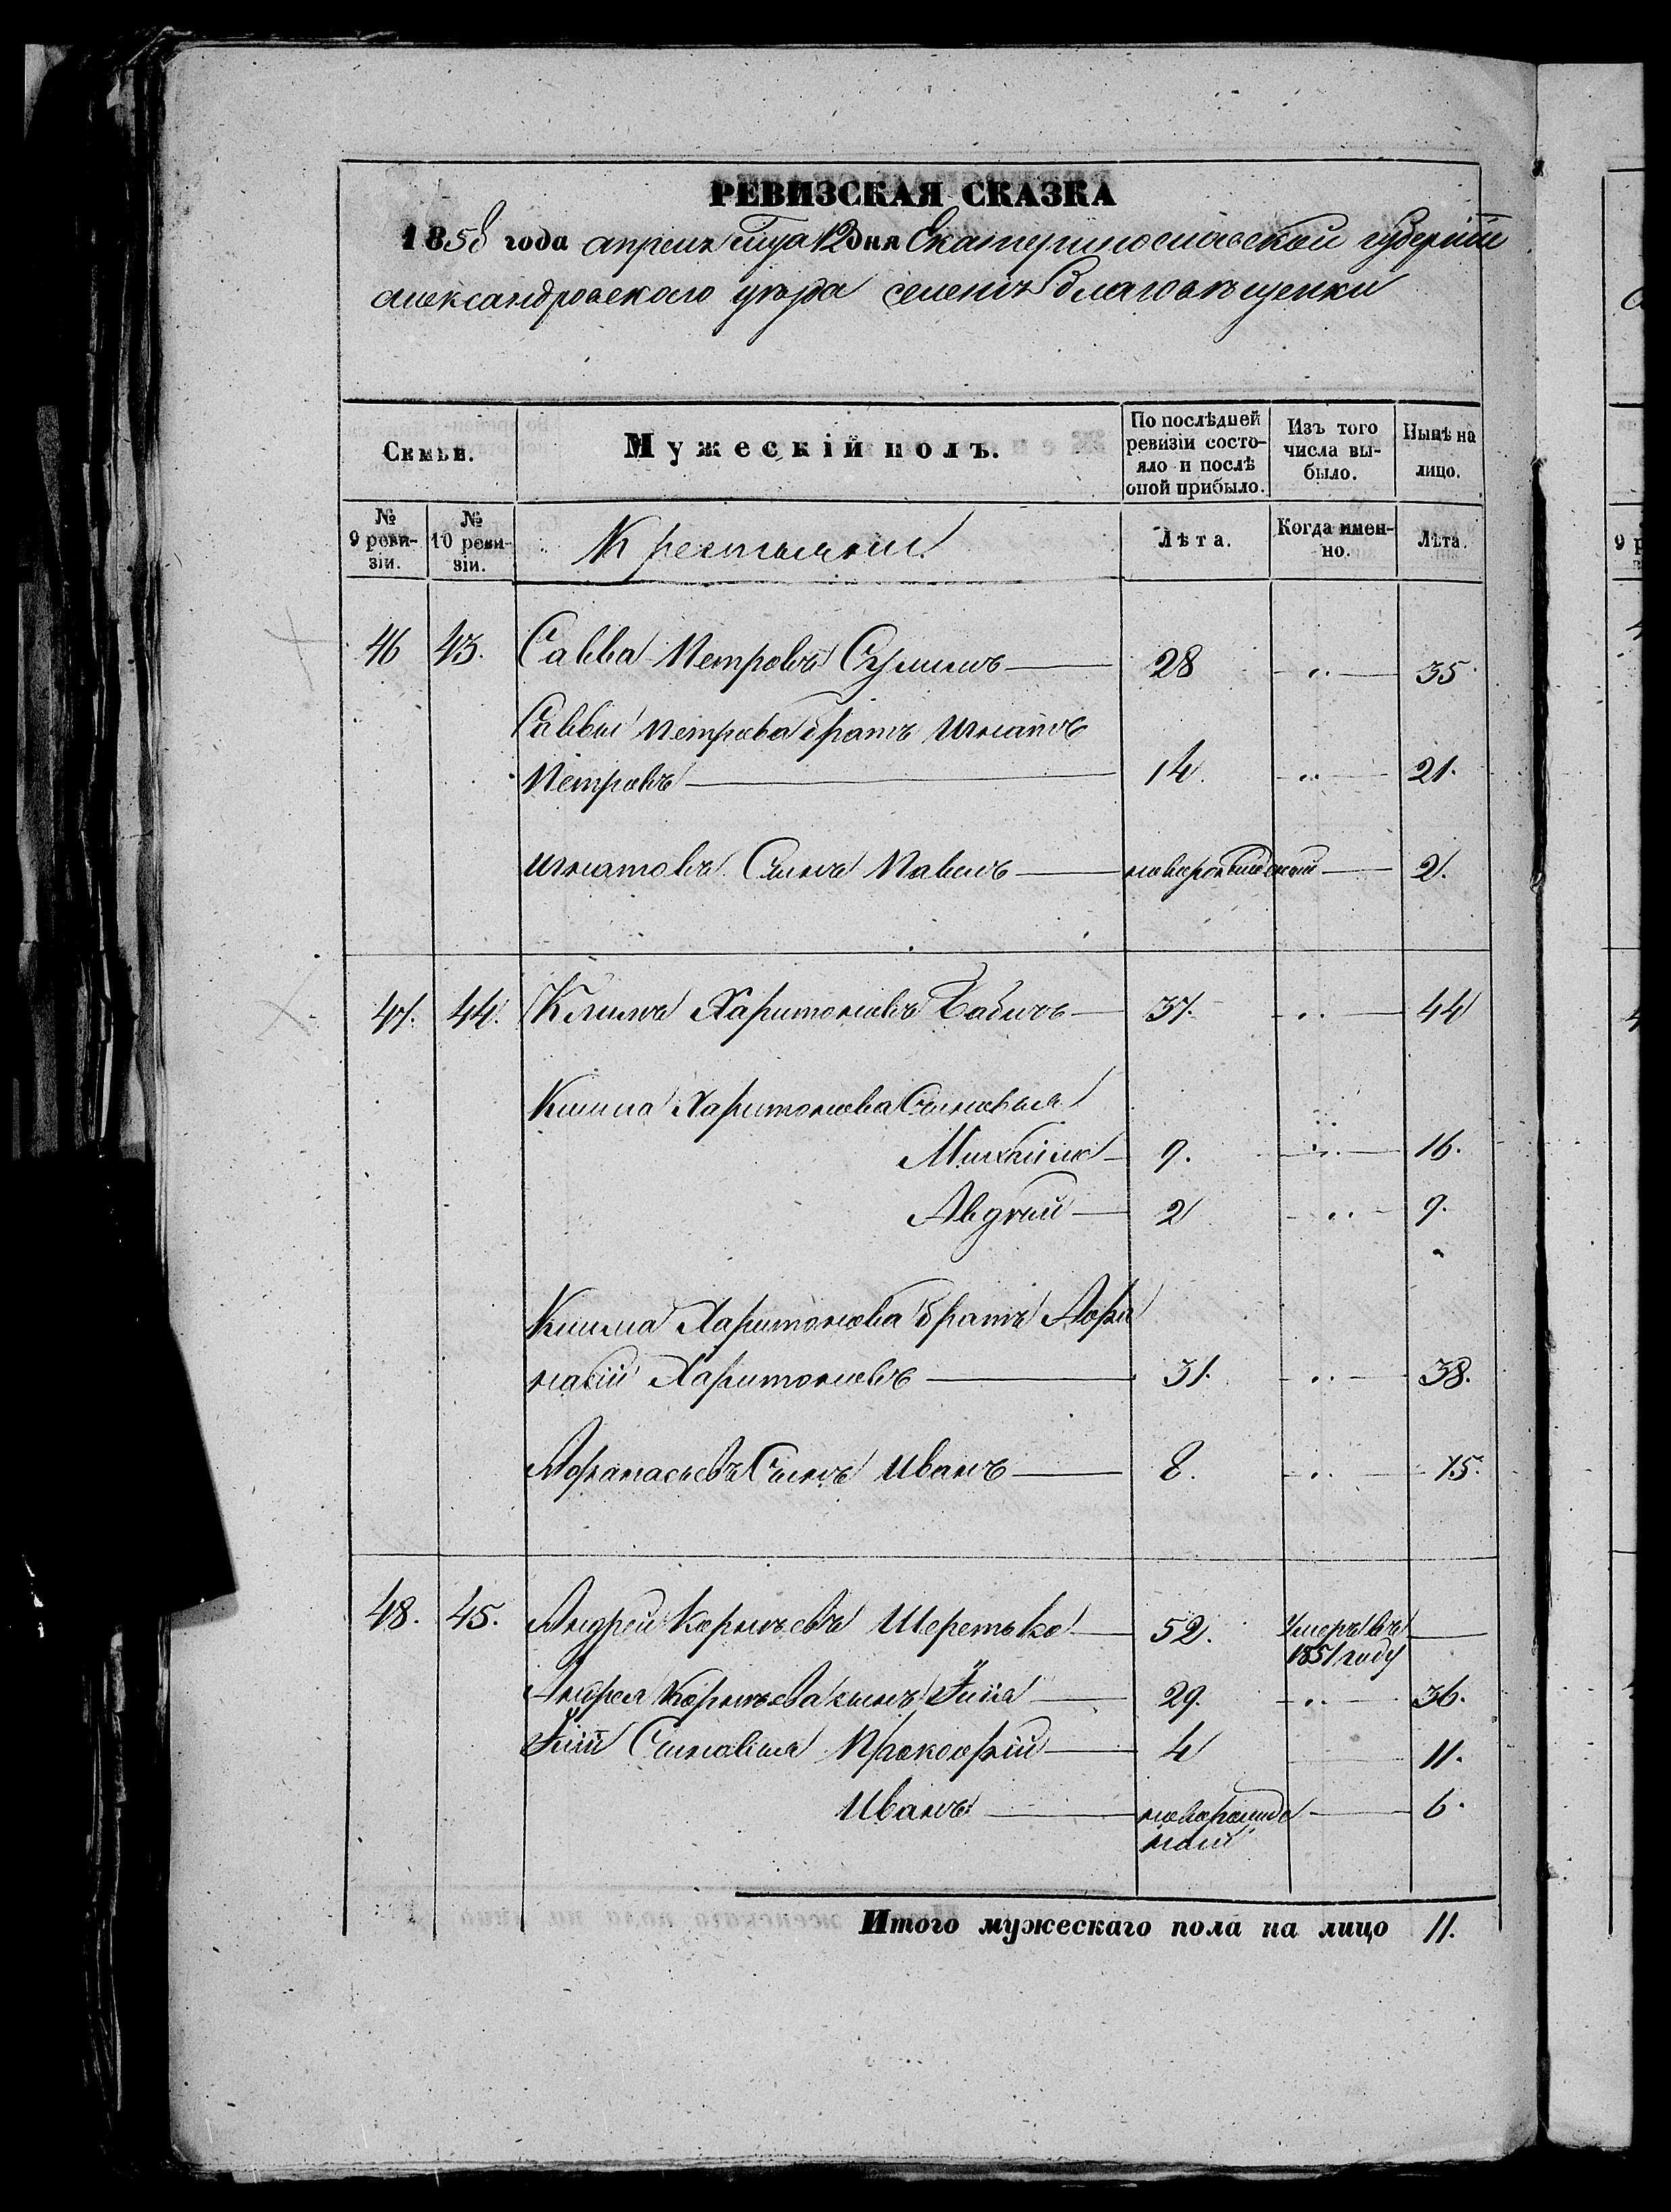 РЕВИЗСКАЯ СКАЗКА
1858 года апреля м-ца 12 дня Екатеринославской губерніи
Александровского уѣзда селенія Благовѣщенки
Семьи.
Мужескій полъ.
По послѣдней ревизіи состояло и послѣ оной прибыло.
Изъ того числа выбыло.
Нынѣ на лицо.
№ 9 ревизіи.
№ 10 ревизіи.
Крестьяни
Лѣта.
Когда именно.
Лѣта.
46 43. Савва Петровъ Сулимъ 28 " 35
Саввы Петрова братъ Игнатъ
Петровъ 14. " 21.
Игнатовъ Сынъ Павелъ новорожденный 2.
47. 44. Климъ Харитоновъ Бабичъ 37. " 44
Клима Харитонова Сыновья
Михайло 9. " 16.
Авдѣй 2 " 9.
Клима Харитонова братъ Афа
насій Харитоновъ 31. " 38.
Афанасьевъ Сынъ Иванъ 8. " 15.
48. 45. Андрей Корнѣевъ Шеретько 52. Умеръ въ
1851 году
Андрея Корнѣева сынъ 29. " 36.
Сыновья Прокофій 4 11.
Иванъ новорожде 6.
ный
Итого мужескаго пола на лицо 11.